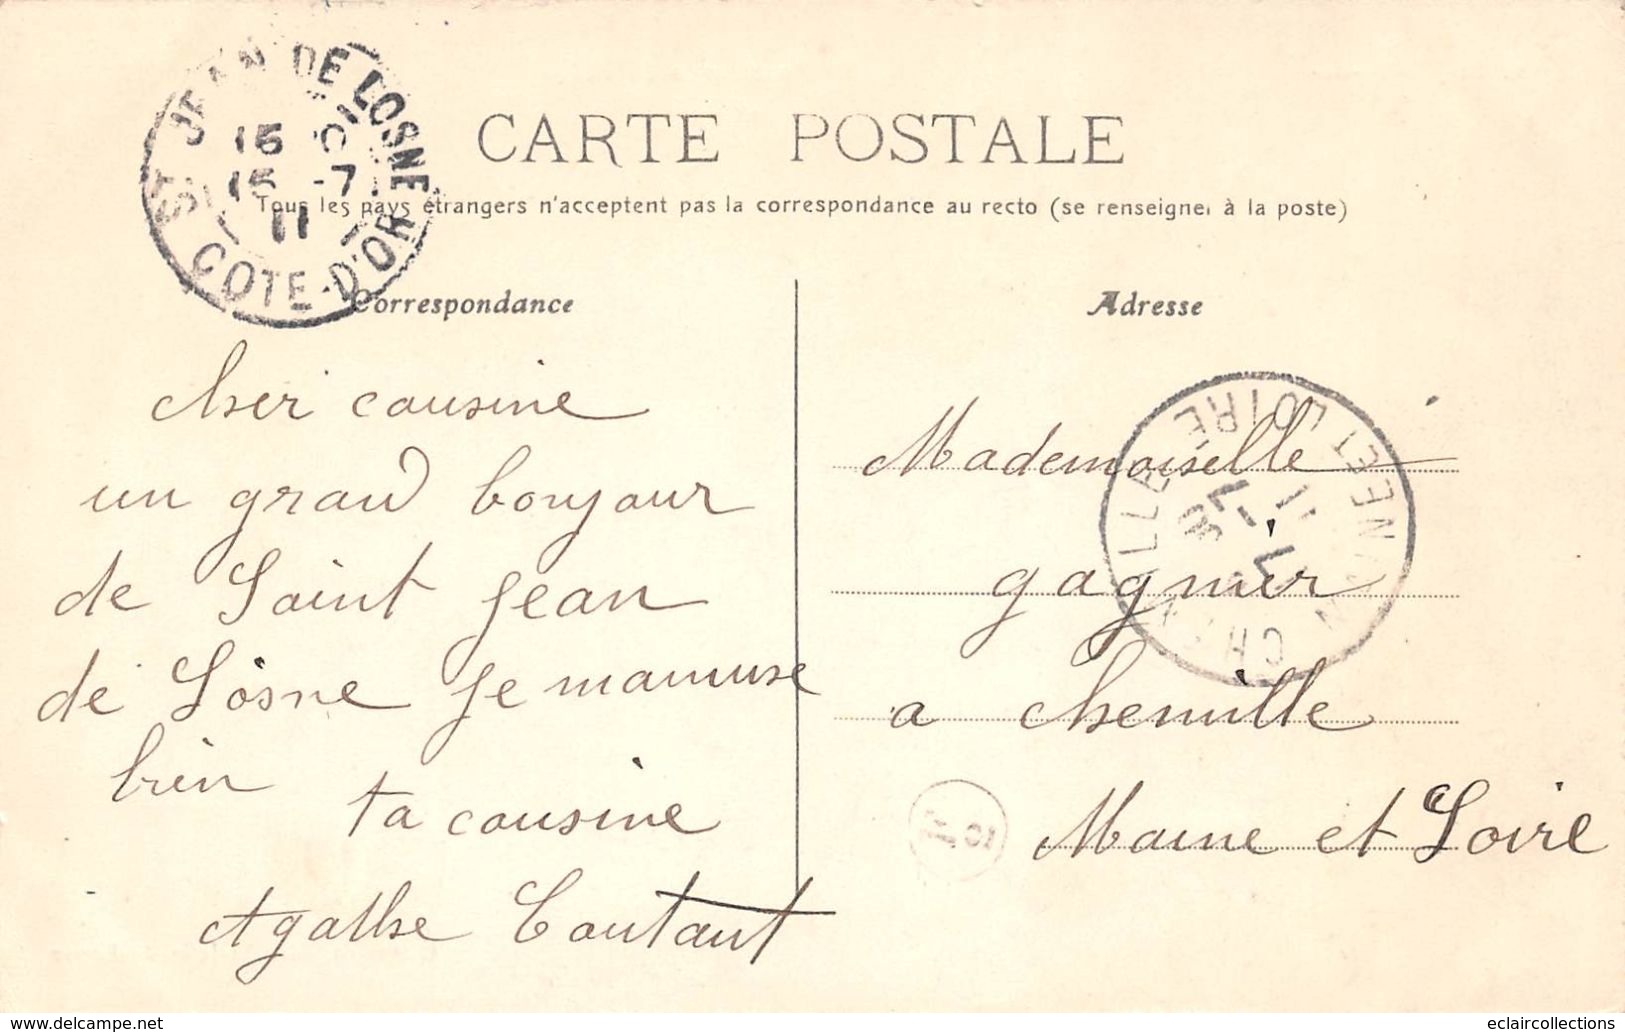 CARTE POSTALE
Tous les pays étrangers n'acceptent pas la correspondance au recto (se renseigner à la poste)
ST JEAN DE LOSNE
15
15 -7
11
COTE-D'OR
Correspondance
Adresse
cher cousine
un grand bonjour
de Saint Jean
de Losne Je mamuse
bien
ta cousine
Agathe Coutant
Mademoiselle
gagnier
a chemille
Maine et Loire
MAINE ET LOIRE
eclaircollections
www.delcampe.net